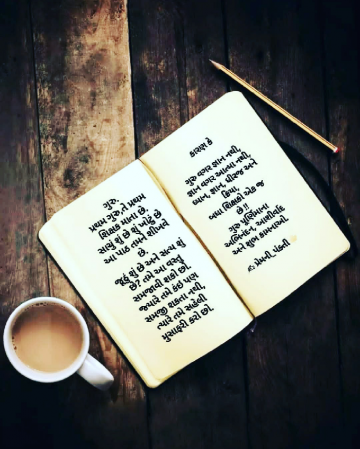 ગુરુ,
પ્રથમ ગુરુ,તે પ્રથમ
શિક્ષક માતા છે.
સાચું શું છે શું ખોટું છે
આ પાઠ તમને શીખવે
છે.
જૂઠું શું છે અને સત્ય શું
છે? તમે આ વસ્તુ
સમજાવી શકો છો.
જ્યારે તમે કંઈઈ પણ
સમજી શકતા નથી,
ત્યારે તમે સહેલી
મુસાફરી કરો છો.
કારણ કે
ગુરુ વગર જ્ઞાન નથી,
જ્ઞાન વગર આત્મા નથી,
ધ્યાન, જ્ઞાન, ધીરજ અને
ક્રિયા,
બધા શિક્ષકો એક જ
છે!!
ગુરુ પૂર્ણિમાના
અભિનંદન, આશીર્વાદ
અને શુભ કામનાઓ.